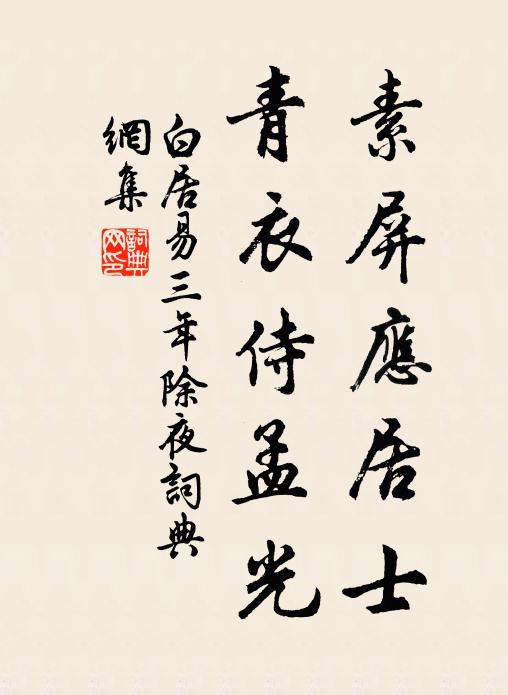 素屏應居士
青衣侍孟光
白居易三年除夜詞典
網集
詞典網印